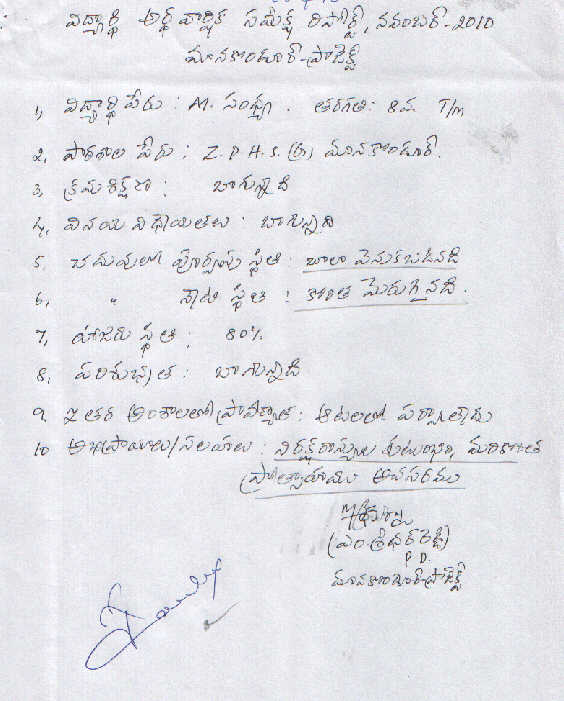 విద్యార్థి అర్థ వార్షిక సమీక్ష రిపోర్ట్, నవంబర్-2010
మానకొండూర్-ప్రాజెక్ట్
1, విద్యార్థి పేరు : M. సంధ్య . తరగతి: 8వ. T/m
2, పాఠశాల పేరు : Z.P.H.S. మానకొండూర్.
3, క్రమశిక్షణ : బాగున్నది
4, వినయ విధేయతలు : బాగున్నది
5. చదువులో పూర్వపు స్థితి : చాలా వెనుకబడినది
6. " నేటి స్థితి : కొంత మెరుగైనది.
7, హాజరు స్థితి : 80%
8, పరిశుభ్రత : బాగున్నది
9. ఇతర అంశాలలో ప్రావీణ్యత : ఆటలలో
10 అభిప్రాయాలు/సలహాలు : కుటుంబం, మరికొంత
ప్రోత్సాహము అవసరము
(ఎం.శ్రీధర్ రెడ్డి)
P.D.
మానకొండూర్-ప్రాజెక్ట్